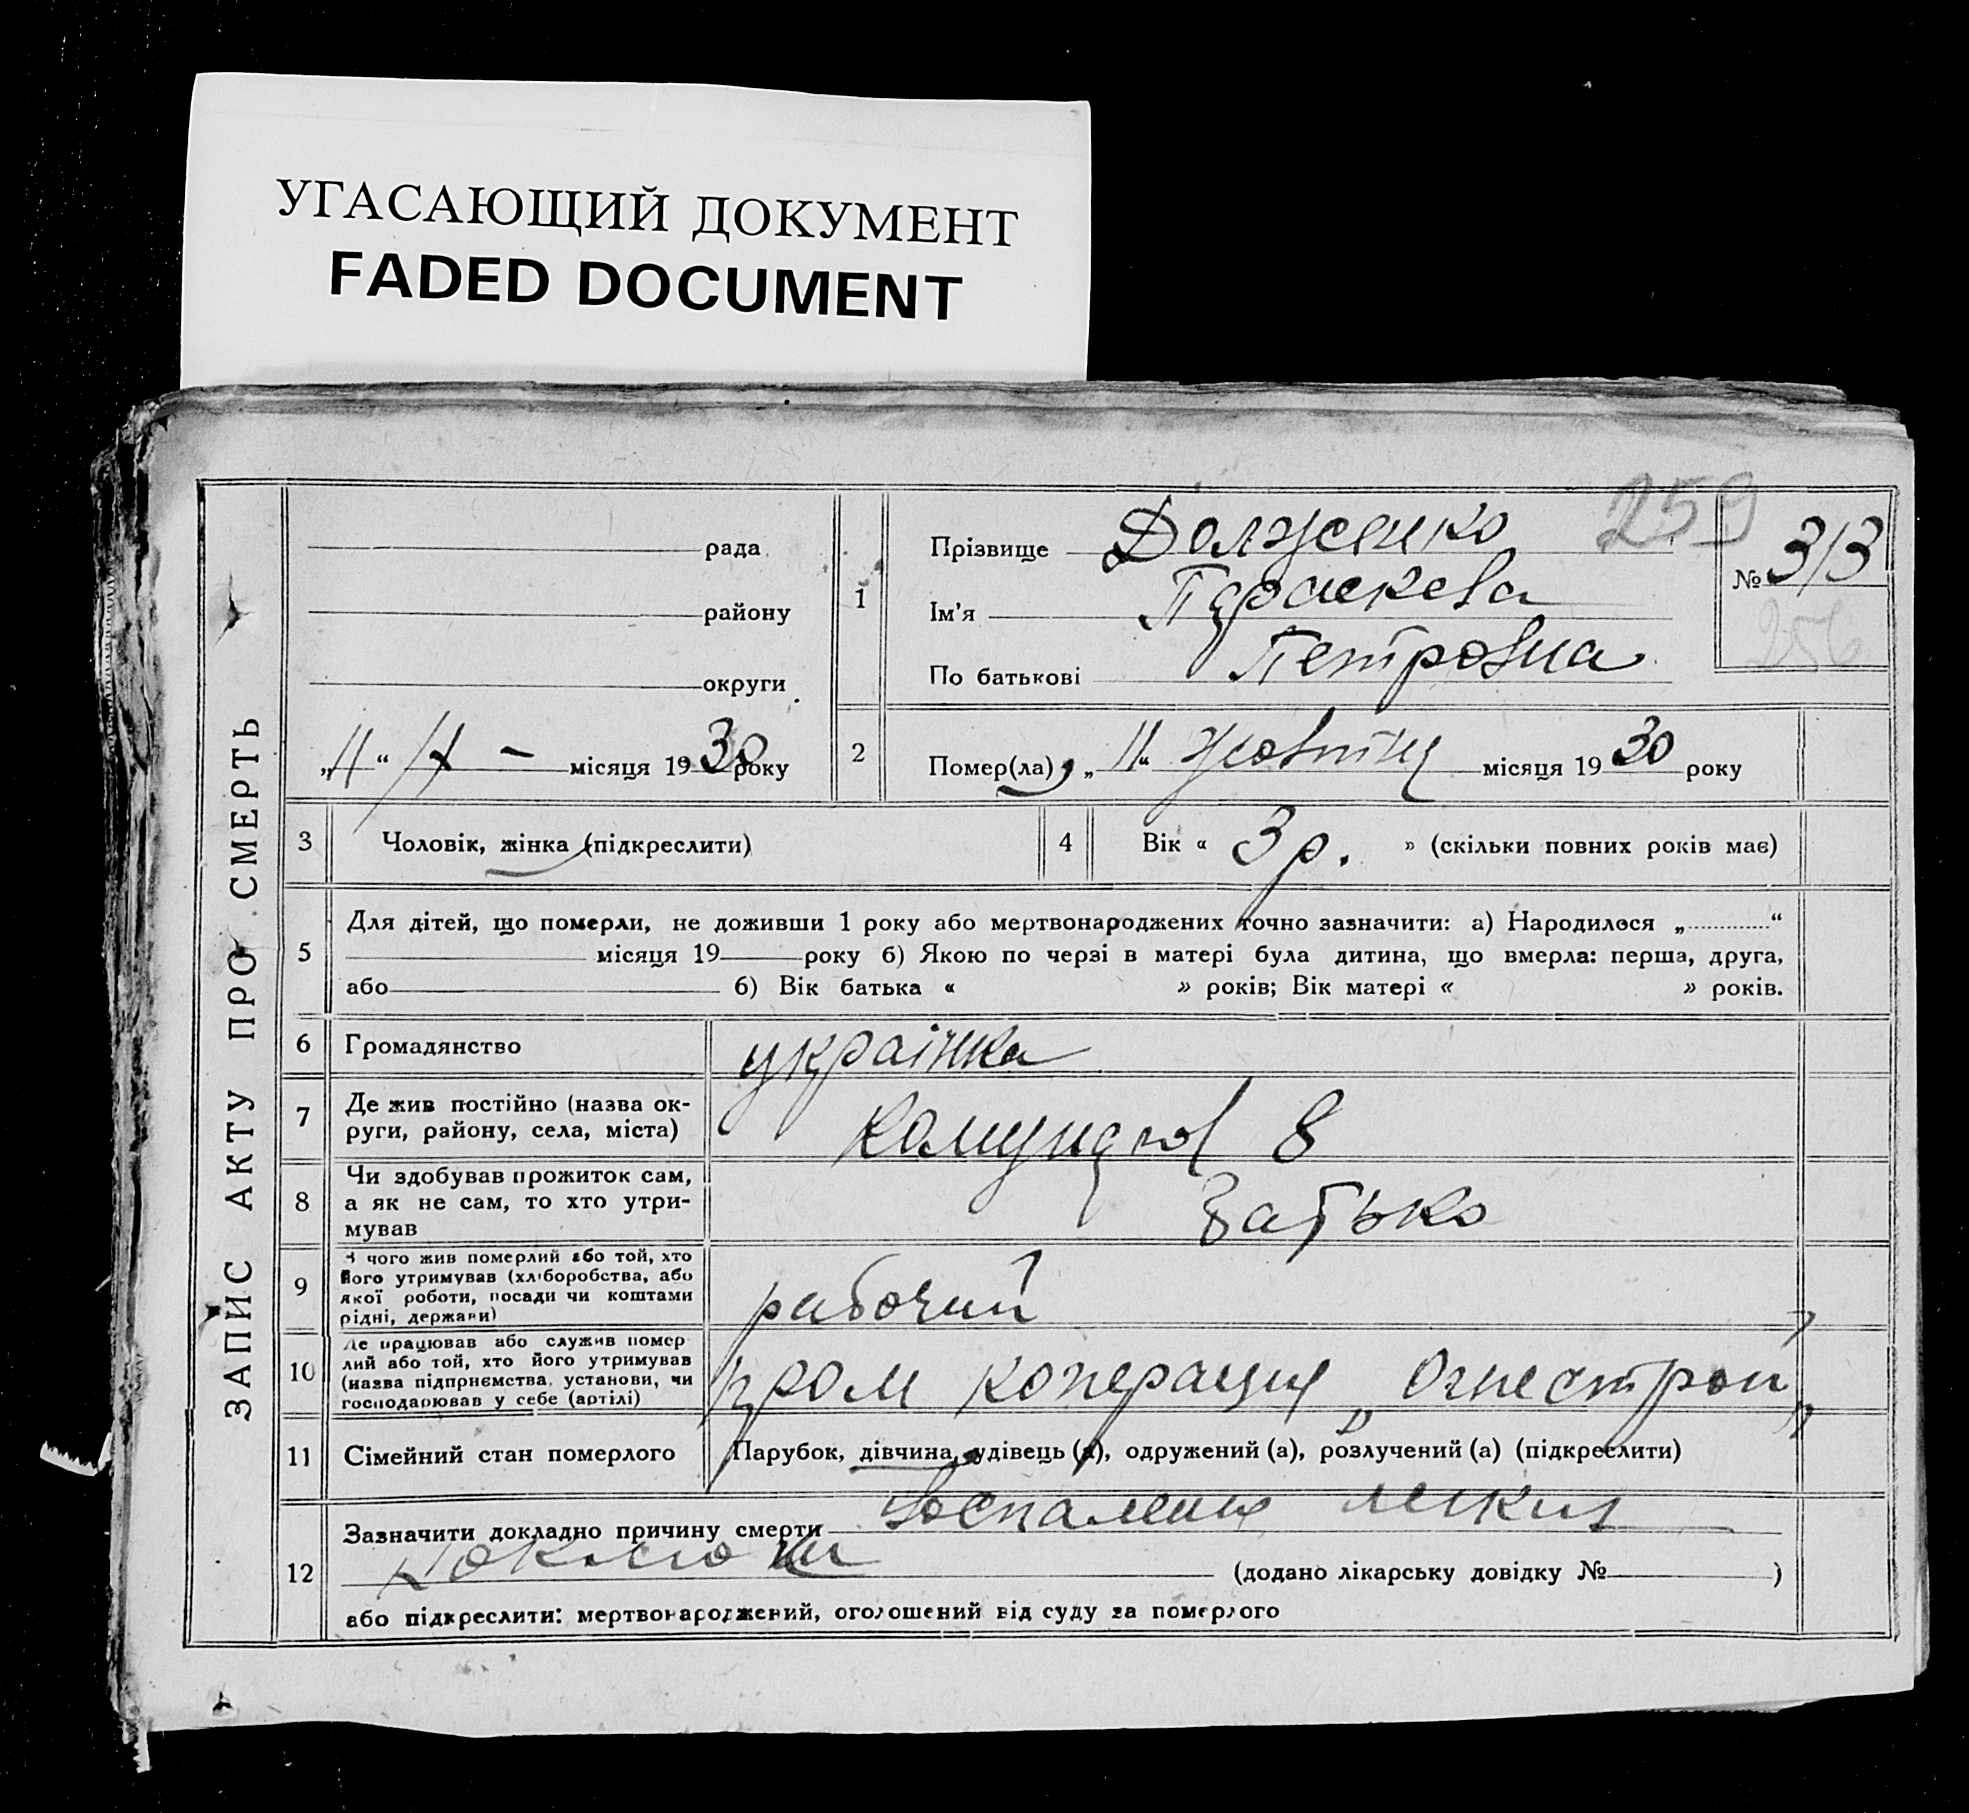 УГАСАЮЩИЙ ДОКУМЕНТ
FADED DOCUMENT
ЗАПИС АКТУ ПРО СМЕРТЬ
рада
району
округи
„11“ місяця 1930 року
1
Прізвище Долженко
Ім'я Параскева
По батькові Петровна
259
№ 313
256
2
Помер(ла) „11“ жовтня місяця 1930 року
3
Чоловік, жінка (підкреслити)
4
Вік « 3 р. » (скільки повних років має)
5
Для дітей, що померли, не доживши 1 року або мертвонароджених точно зазначити: а) Народилося „ “
місяця 19 року б) Якою по черзі в матері була дитина, що вмерла: перша, друга,
або б) Вік батька « » років; Вік матері « » років.
6
Громадянство
українка
7
Де жив постійно (назва ок-
руги, району, села, міста)
8
8
Чи здобував прожиток сам,
а як не сам, то хто утри-
мував
батько
9
З чого жив померлий або той, хто
його утримував (хліборобства, або
якої роботи, посади чи коштами
рідні, держави)
рабочий
10
Де працював або служив помер
лий або той, хто його утримував
(назва підприємства, установи, чи
господарював у себе (артілі)
пром коперация „Огнестрой“
11
Сімейний стан померлого
Парубок, дівчина, удівець (а), одружений (а), розлучений (а) (підкреслити)
12
Зазначити докладно причину смерти Воспаления легких
(додано лікарську довідку № )
або підкреслити: мертвонароджений, оголошений від суду за померлого